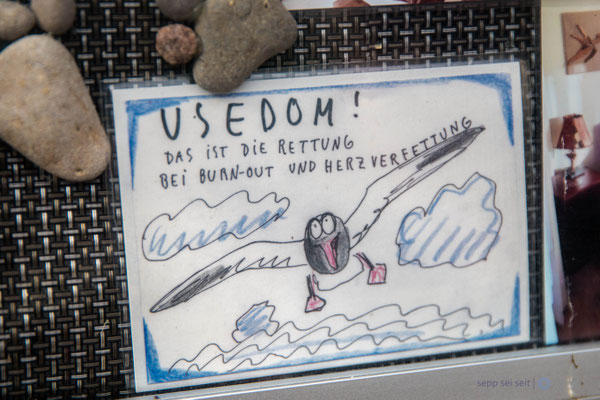 USEDOM!
DAS IST DIE RETTUNG
BEI BURN-OUT UND HERZVERFETTUNG
sepp sei seit